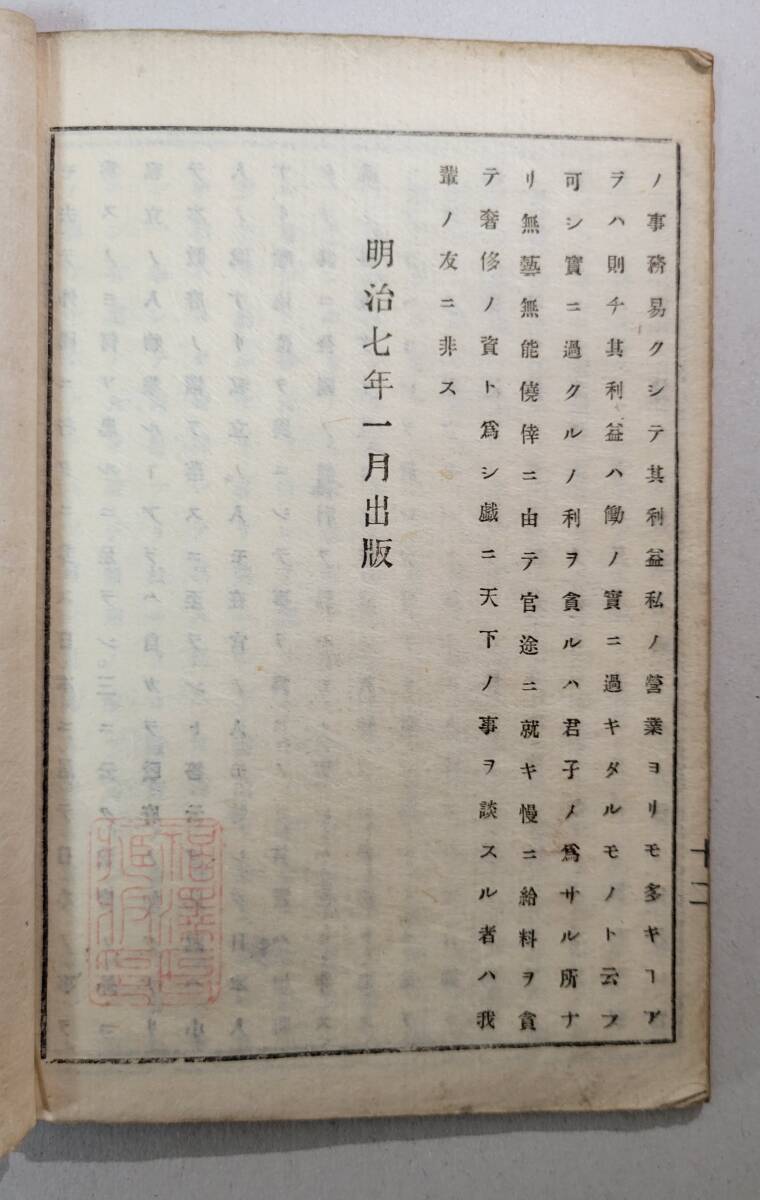 ノ事務易クシテ其利益私ノ營業ヨリモ多キヿア
ヲハ則チ其利益ハ働ノ實ニ過キタルモノト云フ
可シ實ニ過クルノ利ヲ貪ルハ君子ノ爲サル所ナ
リ無藝無能僥倖ニ由テ官途ニ就キ慢ニ給料ヲ貪
テ奢侈ノ資ト爲シ戯ニ天下ノ事ヲ談スル者ハ我
輩ノ友ニ非ス
明治七年一月出版
十二